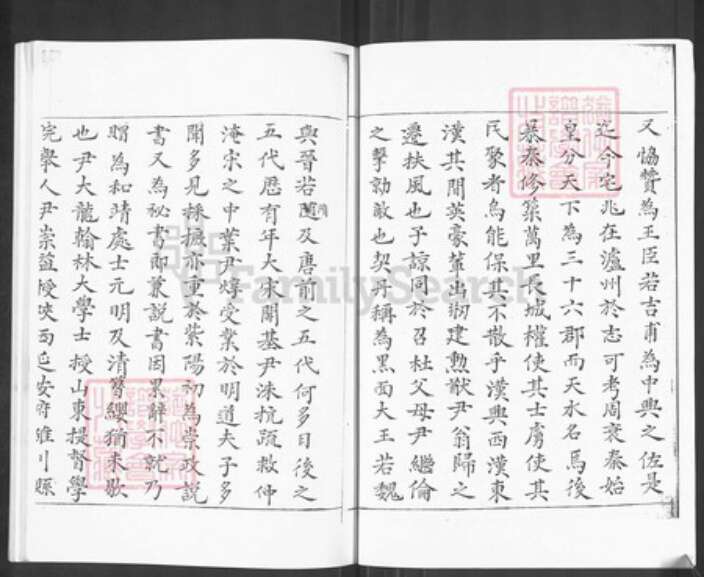 又恊贊為王臣若吉甫為中興之佐是
迄今宅兆在瀘州於志可考周衰秦始
皇分天下為三十六郡而天水名焉後
暴秦修築萬里長城權使其士虜使其
民聚者烏能保其不散乎漢興西漢東
漢其間英豪輩出剏建勲猷尹翁歸之
遷扶風也予諒同於召杜父母尹繼倫
之擊勍敵也契丹稱為黑面大王若魏
與晉若隋及唐前之五代何多日後之
五代歷有年大宋開基尹洙抗疏救仲
淹宋之中葉尹焞受業於明道夫子多
聞多見採擷亦重於紫陽初為崇政說
書又為祕書郎兼說書因累辭不就乃
賜為和靖處士元明及清簪纓猶未歇
也尹大龍翰林大學士授山東提督學
院舉人尹崇益授陝西延安府雒川縣
FamilySearch